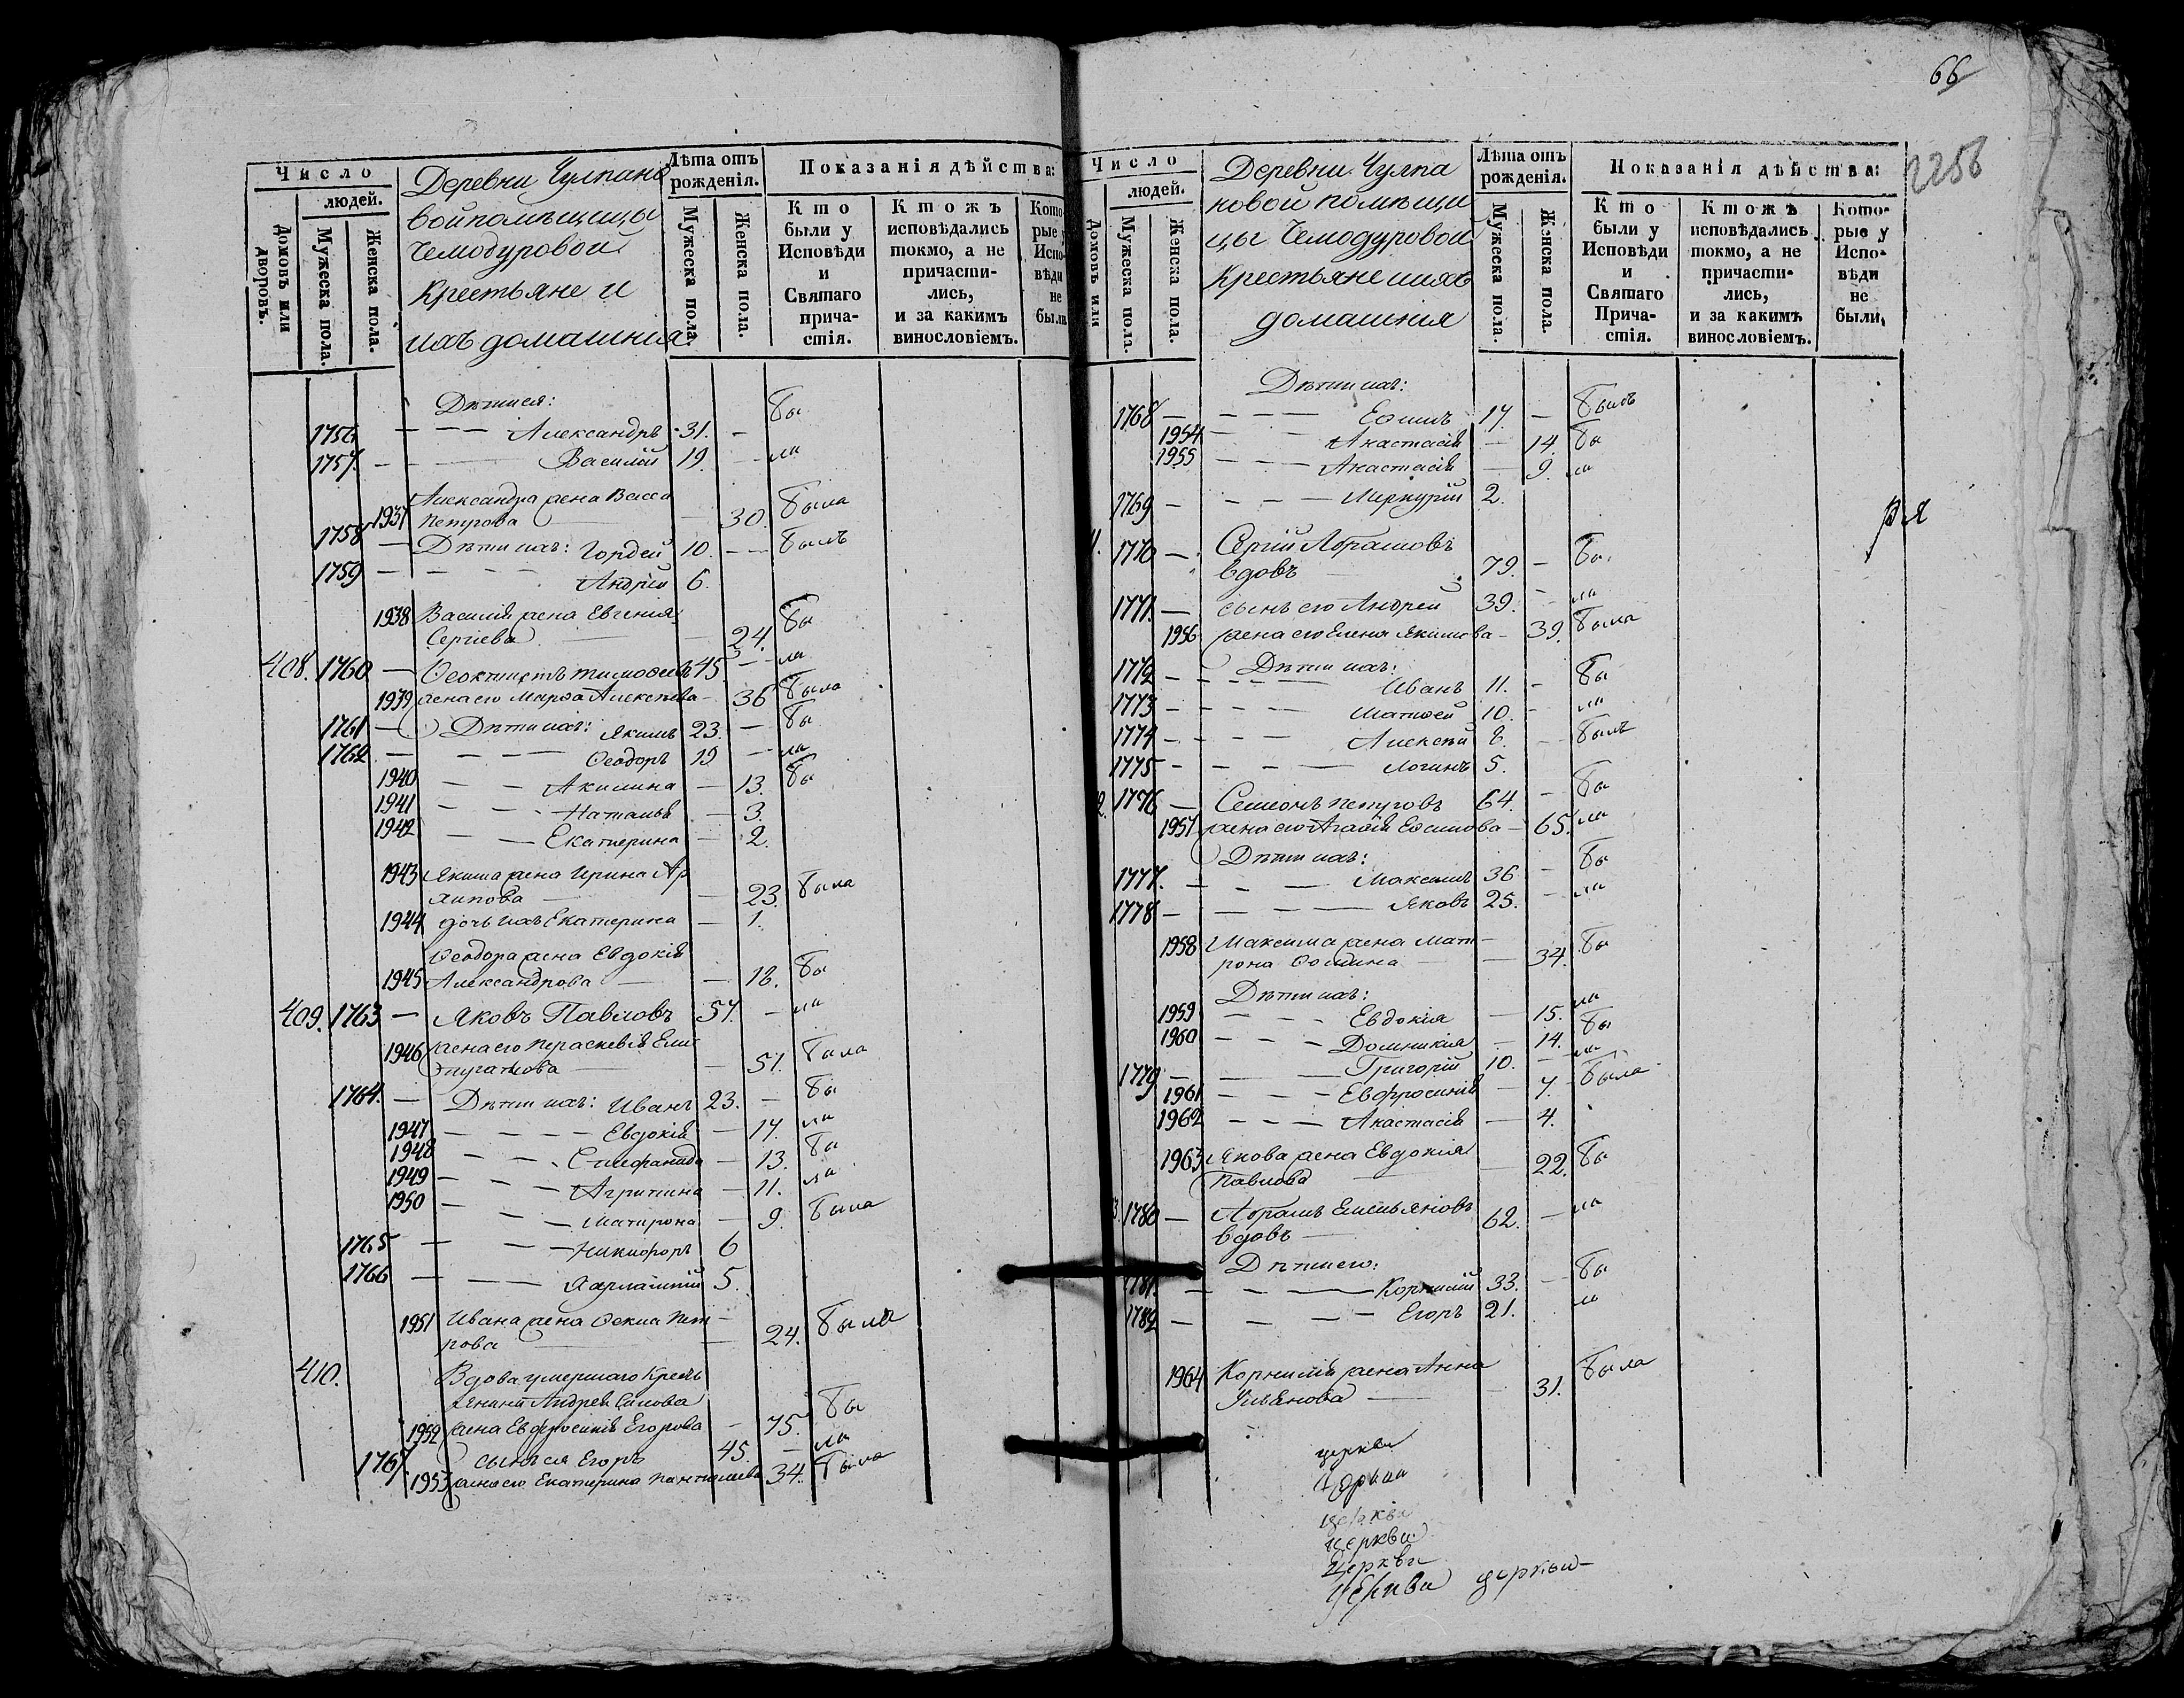 Число
людей.
Домовъ или дворовъ.
Мужеска пола.
Женска пола.
Деревни Чулпано
вой помѣщицы
Чемодуровой
Крестьяне и
ихъ домашнія
Лѣта отъ рожденія.
Мужеска пола.
Женска пола.
Показанія дѣйства:
Кто были у Исповѣди и Святаго прича- стія.
Ктожъ исповѣдались токмо, а не причасти- лись, и за какимъ винословіемъ.
Кото- рые у Испо- вѣди не были
Дѣти ея:
1756 — — — Александръ 31. — бы
1757. — — — Василій 19. — ли
Александра жена Васса
1937 Петрова — 30. была
1758 — Дѣти ихъ: Гордей 10. — былъ
1759 — — — Андрей 6.
1938 Василія жена Евгенія
Сергіева — 24. бы
408. 1760 — Ѳеоктистъ Тимоѳеевъ 45 — ли
1939 жена его Марѳа Алексѣева — 36 была
1761 — Дѣти ихъ: Якимъ 23. — бы
1762 — — — Ѳеодоръ 19 — ли
1940 — — Акилина — 13. бы
1941 — — Наталья — 3.
1942 — — Екатерина — 2.
1943 Якима жена Ирина Ар
хипова — 23. была
1944 дочь ихъ Екатерина — 1.
Ѳеодора жена Евдокія
1945 Александрова — 18. бы
409. 1763 — Яковъ Павловъ 57. — ли
1946 жена его Параскевія
— 51. была
1764. — Дѣти ихъ: Иванъ 23. — бы
1947 — — — Евдокія — 17. ли
1948 — — Степанида — 13. бы
1949 — — — Агрипина — 11. ли
1950 — — — Матрона — 9. была
1765 — — — Никифоръ 6
1766 — — — Харлампій 5.
1951 Ивана жена Ѳекла Пет-
рова — 24. была
410. Вдова умершаго Кресть
янина Андрея Силова
1952 жена Евфросинія Егорова — 75. бы
1767 сынъ ея Егоръ 45. — ли
1953 жена его Екатерина 34. была
66
2256
Число
людей.
Домовъ или
Мужеска пола.
Женска пола.
Деревни Чулпа
новой помѣщи
цы Чемодуровой
Крестьяне ихъ
домашнія
Лѣта отъ рожденія.
Мужеска пола.
Женска пола.
Показанія дѣйства:
Кто были у Исповѣди и Святаго Прича- стія.
Ктожъ исповѣдались токмо, а не причасти- лись, и за какимъ винословіемъ.
Кото- рые у Испо- вѣди не были,
Дѣти ихъ:
1768 — — — Ефимъ 17. — былъ
1954 — — Анастасія — 14. бы
1955 — — Анастасія — 9. ли
1769 — — — Меркурій 2.
1770 — Сергій Абрамовъ
вдовъ 79. — бы
1771. — сынъ его Андрей 39. — ли
1956 жена его Елена Якимова — 39. была
Дѣти ихъ:
1772 — — — Иванъ 11. — бы
1773 — — — Матвей 10. — ли
1774 — — — Алексѣй 8. — былъ
1775 — — — Логинъ 5.
1776 — Семенъ Петровъ 64. — бы
1957 жена его Агафія Ефимова — 65. ли
Дѣти ихъ:
1777. — — — Максимъ 36 — бы
1778 — — — Яковъ 25. — ли
1958 Максима жена Мат-
рона Ѳомина — 34. бы
Дѣти ихъ:
1959 — — — Евдокія — 15. ли
1960 — — — Домникія — 14. бы
1779 — — — Григорій 10. — ли
1961 — — — Евфросинія — 7. была
1962 — — — Анастасія — 4.
1963 Якова жена Евдокія
Павлова — 22. бы
1780 — Абрамъ Емельяновъ
вдовъ — 62. — ли
Дѣти его:
1781. — — — Корнилій 33. — бы
1782 — — — Егоръ 21. ли
1964 Корнилія жена Анна
Ульянова — 31. была
церкви
церкви
церкви
церкви
церкви
церкви церкви